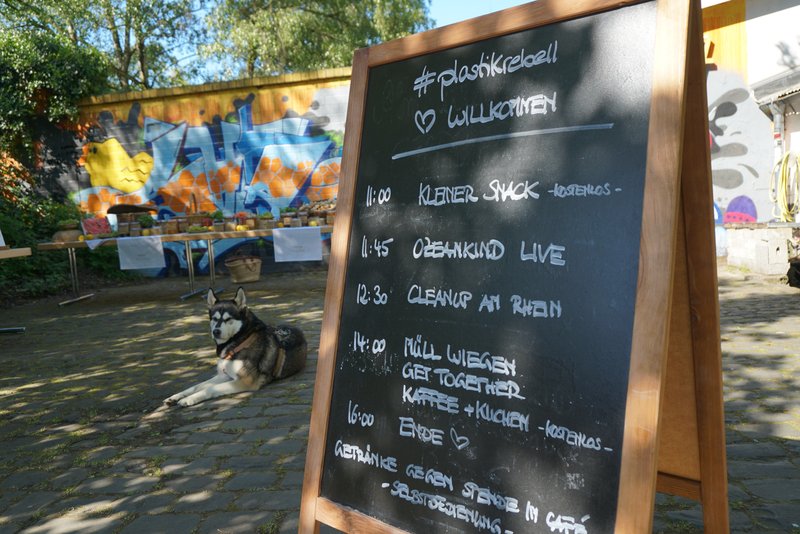 #plastikrebell
♡ WILLKOMMEN
11:00 KLEINER SNACK -KOSTENLOS-
11:45 OZEANKIND LIVE
12:30 CLEANUP AM RHEIN
14:00 MÜLL WIEGEN
GET TOGETHER
KAFFEE + KUCHEN -KOSTENLOS-
16:00 ENDE ♡
GETRÄNKE GEGEN SPENDE IM CAFÉ
- SELBSTBEDIENUNG -